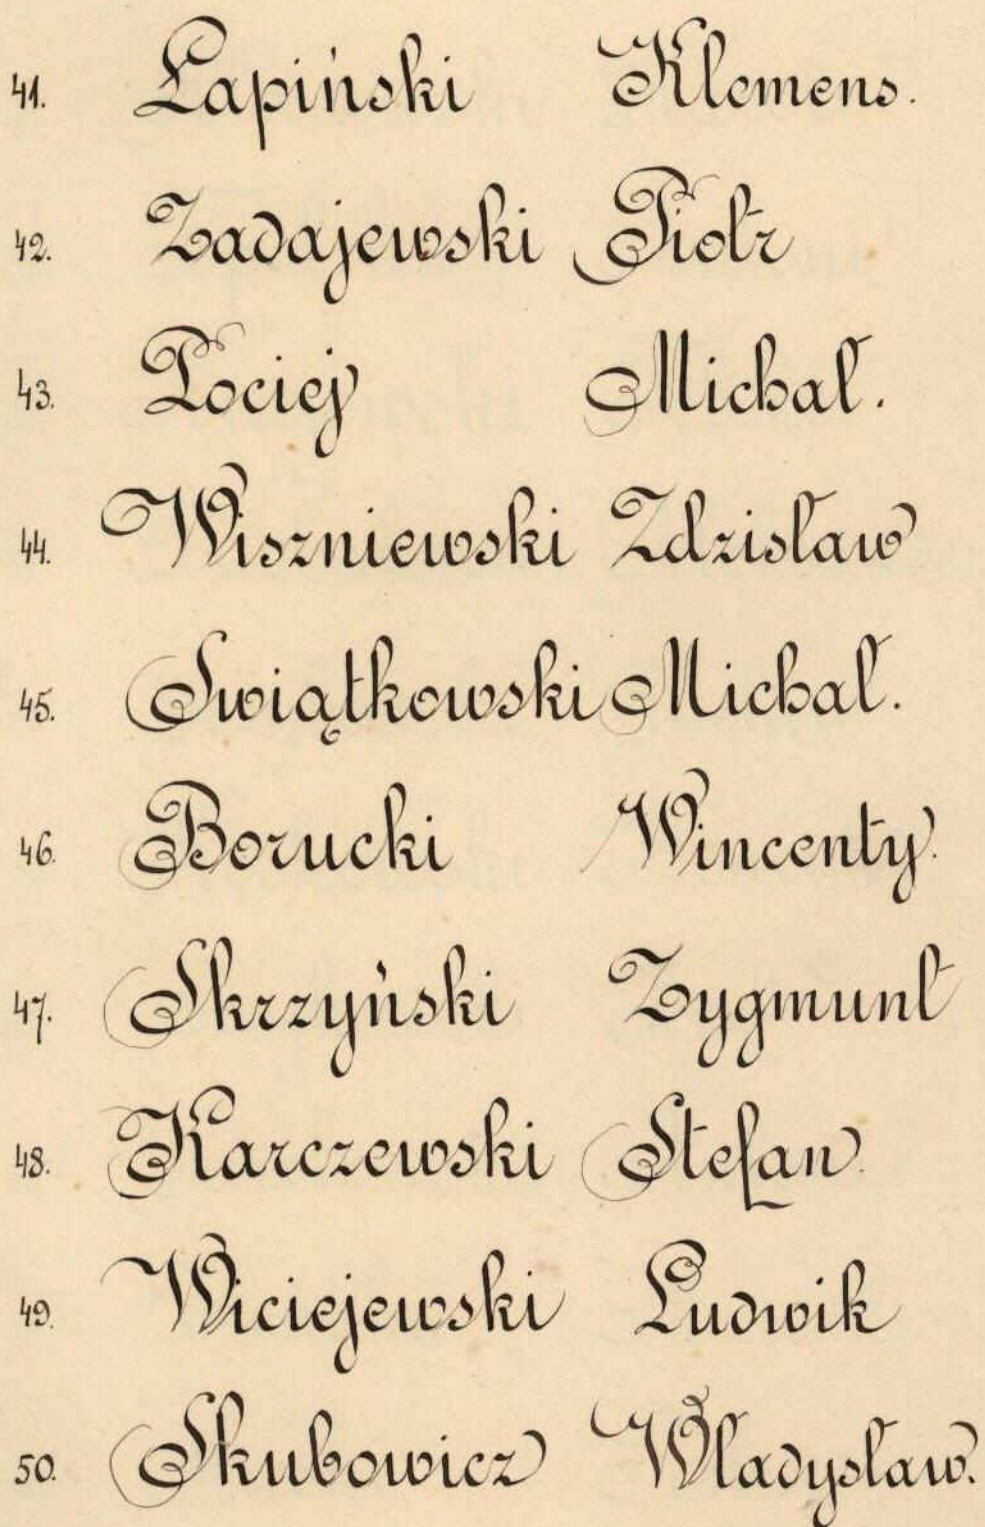 41. Łapiński Klemens.
42. Zadajewski Piotr
43. Pociej Michał.
44. Wiszniewski Zdzisław
45. Swiątkowski Michał.
46. Borucki Wincenty.
47. Skrzyński Zygmunt
48. Karczewski Stefan.
49. Wiciejewski Ludwik
50. Skubowicz Władysław.